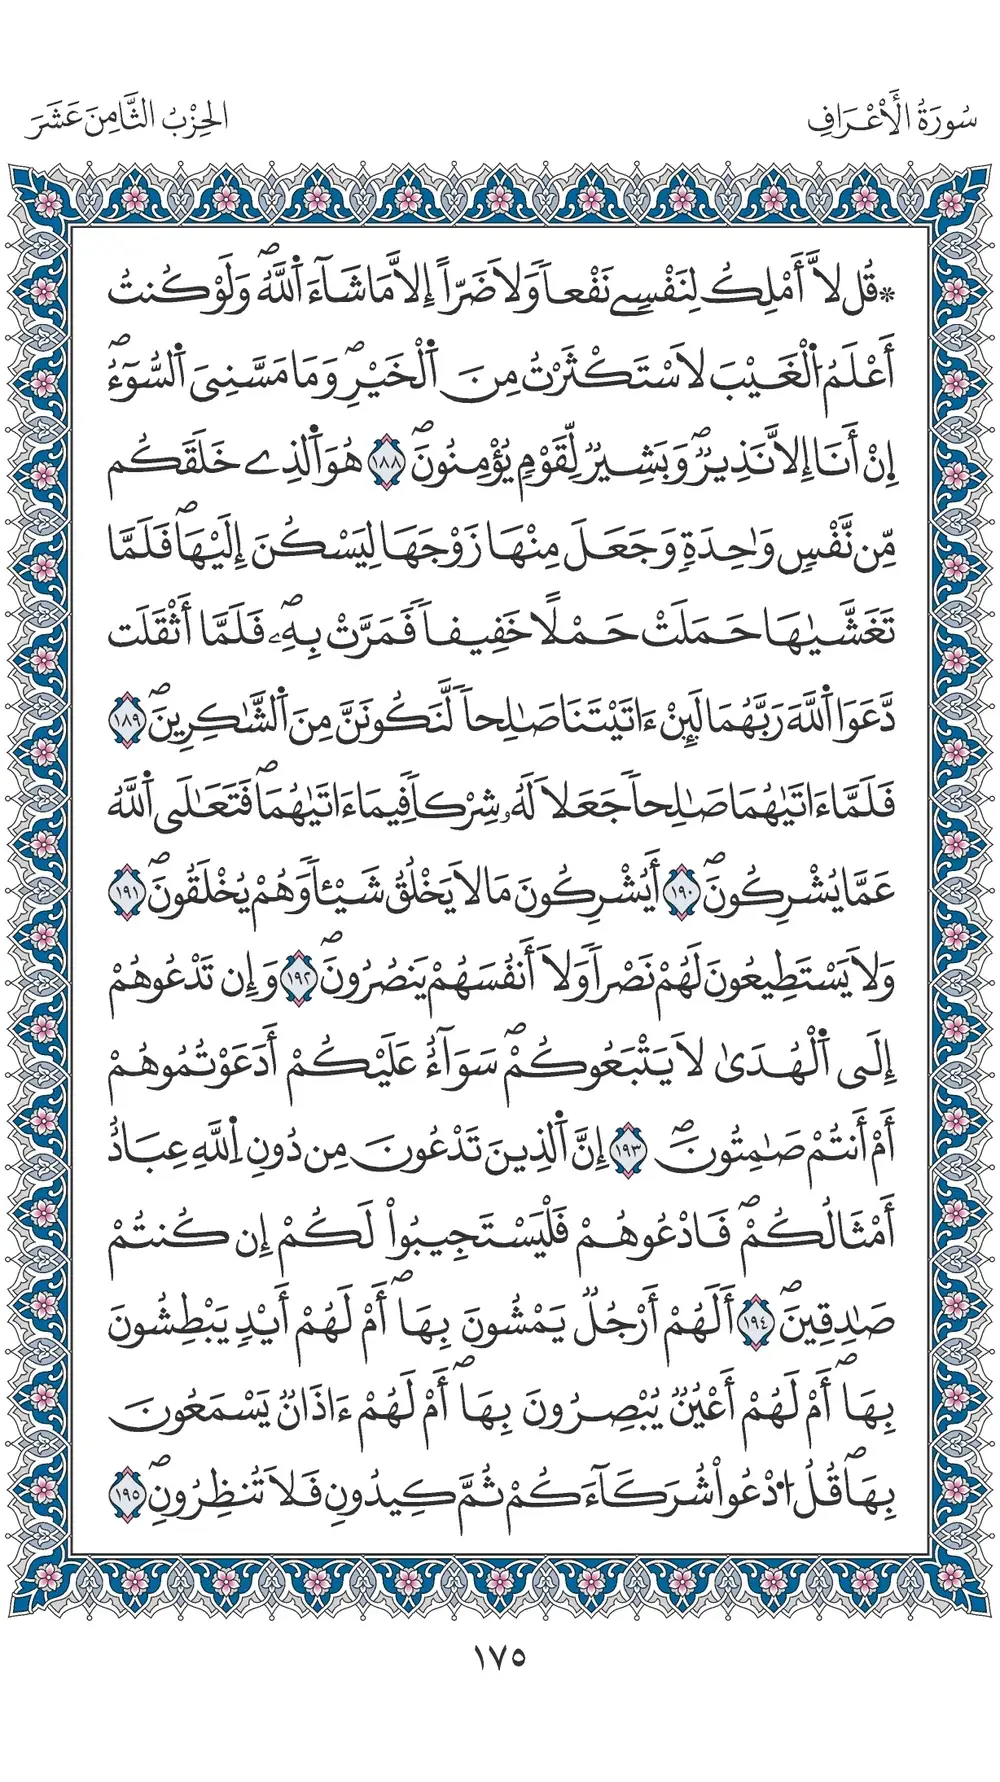 سُورَةُ الْأَعْرَافِ
الحِزْبُ الثَّامِنَ عَشَرَ
*قُل لَّا أَمْلِكُ لِنَفْسِے نَفْعاٗ وَلَا ضَرّاً إِلَّا مَا شَآءَ اَ۬للَّهُۖ وَلَوْ كُنتُ
أَعْلَمُ اُ۬لْغَيْبَ لَاسْتَكْثَرْتُ مِنَ اَ۬لْخَيْرِۖ وَمَا مَسَّنِيَ اَ۬لسُّوٓءُۖ
إِنْ أَنَا إِلَّا نَذِيرٞ وَبَشِيرٞ لِّقَوْمٖ يُؤْمِنُونَۖ ١٨٨ هُوَ اَ۬لذِے خَلَقَكُم
مِّن نَّفْسٖ وَٰحِدَةٖ وَجَعَلَ مِنْهَا زَوْجَهَا لِيَسْكُنَ إِلَيْهَاۖ فَلَمَّا
تَغَشَّيٰهَا حَمَلَتْ حَمْلاً خَفِيفاٗ فَمَرَّتْ بِهِۦۖ فَلَمَّا أَثْقَلَت
دَّعَوَا اَ۬للَّهَ رَبَّهُمَا لَئِنْ ءَاتَيْتَنَا صَٰلِحاٗ لَّنَكُونَنَّ مِنَ اَ۬لشَّٰكِرِينَۖ ١٨٩
فَلَمَّا ءَاتَيٰهُمَا صَٰلِحاٗ جَعَلَا لَهُۥ شِرْكاٗ فِيمَا ءَاتَيٰهُمَاۖ فَتَعَٰلَى اَ۬للَّهُ
عَمَّا يُشْرِكُونَۖ ١٩٠ أَيُشْرِكُونَ مَا لَا يَخْلُقُ شَيْـٔاٗ وَهُمْ يُخْلَقُونَۖ ١٩١
وَلَا يَسْتَطِيعُونَ لَهُمْ نَصْراٗ وَلَا أَنفُسَهُمْ يَنصُرُونَۖ ١٩٢ وَإِن تَدْعُوهُمْ
إِلَى اَ۬لْهُدَىٰ لَا يَتْبَعُوكُمْۖ سَوَآءٌ عَلَيْكُمْ أَدَعَوْتُمُوهُمْ
أَمْ أَنتُمْ صَٰمِتُونَۖ ١٩٣ إِنَّ اَ۬لذِينَ تَدْعُونَ مِن دُونِ اِ۬للَّهِ عِبَادٌ
أَمْثَالُكُمْۖ فَادْعُوهُمْ فَلْيَسْتَجِيبُواْ لَكُمْ إِن كُنتُمْ
صَٰدِقِينَۖ ١٩٤ أَلَهُمْ أَرْجُلٞ يَمْشُونَ بِهَاۖ أَمْ لَهُمْ أَيْدٖ يَبْطِشُونَ
بِهَاۖ أَمْ لَهُمْ أَعْيُنٞ يُبْصِرُونَ بِهَاۖ أَمْ لَهُمْ ءَاذَانٞ يَسْمَعُونَ
بِهَاۖ قُلُ اُ۟دْعُواْ شُرَكَآءَكُمْ ثُمَّ كِيدُونِ فَلَا تُنظِرُونِۖ ١٩٥
١٧٥